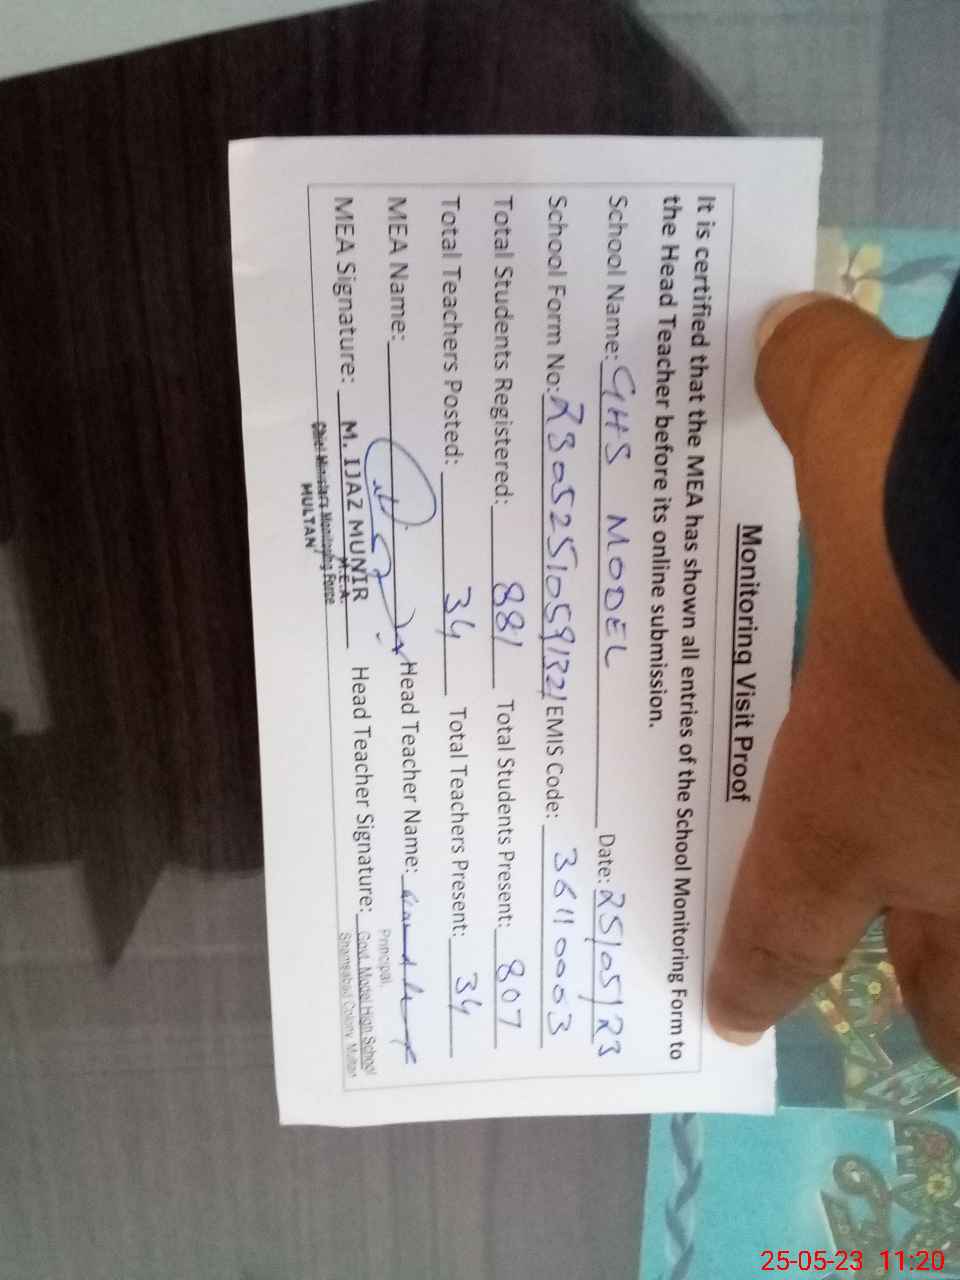 Monitoring Visit Proof
It is certified that the MEA has shown all entries of the School Monitoring Form to
the Head Teacher before its online submission.
School Name: GHS MODEL Date: 25/05/23
School Form No: 23052510591321 EMIS Code: 36110003
Total Students Registered: 881 Total Students Present: 807
Total Teachers Posted: 34 Total Teachers Present: 34
MEA Name: Head Teacher Name:
Principal,
MEA Signature: M. IJAZ MUNIR Head Teacher Signature: Govt. Model High School
M.E.A. Shamsabad Colony, Multan
Chief Minister's Monitoring Force
MULTAN
25-05-23 11:20